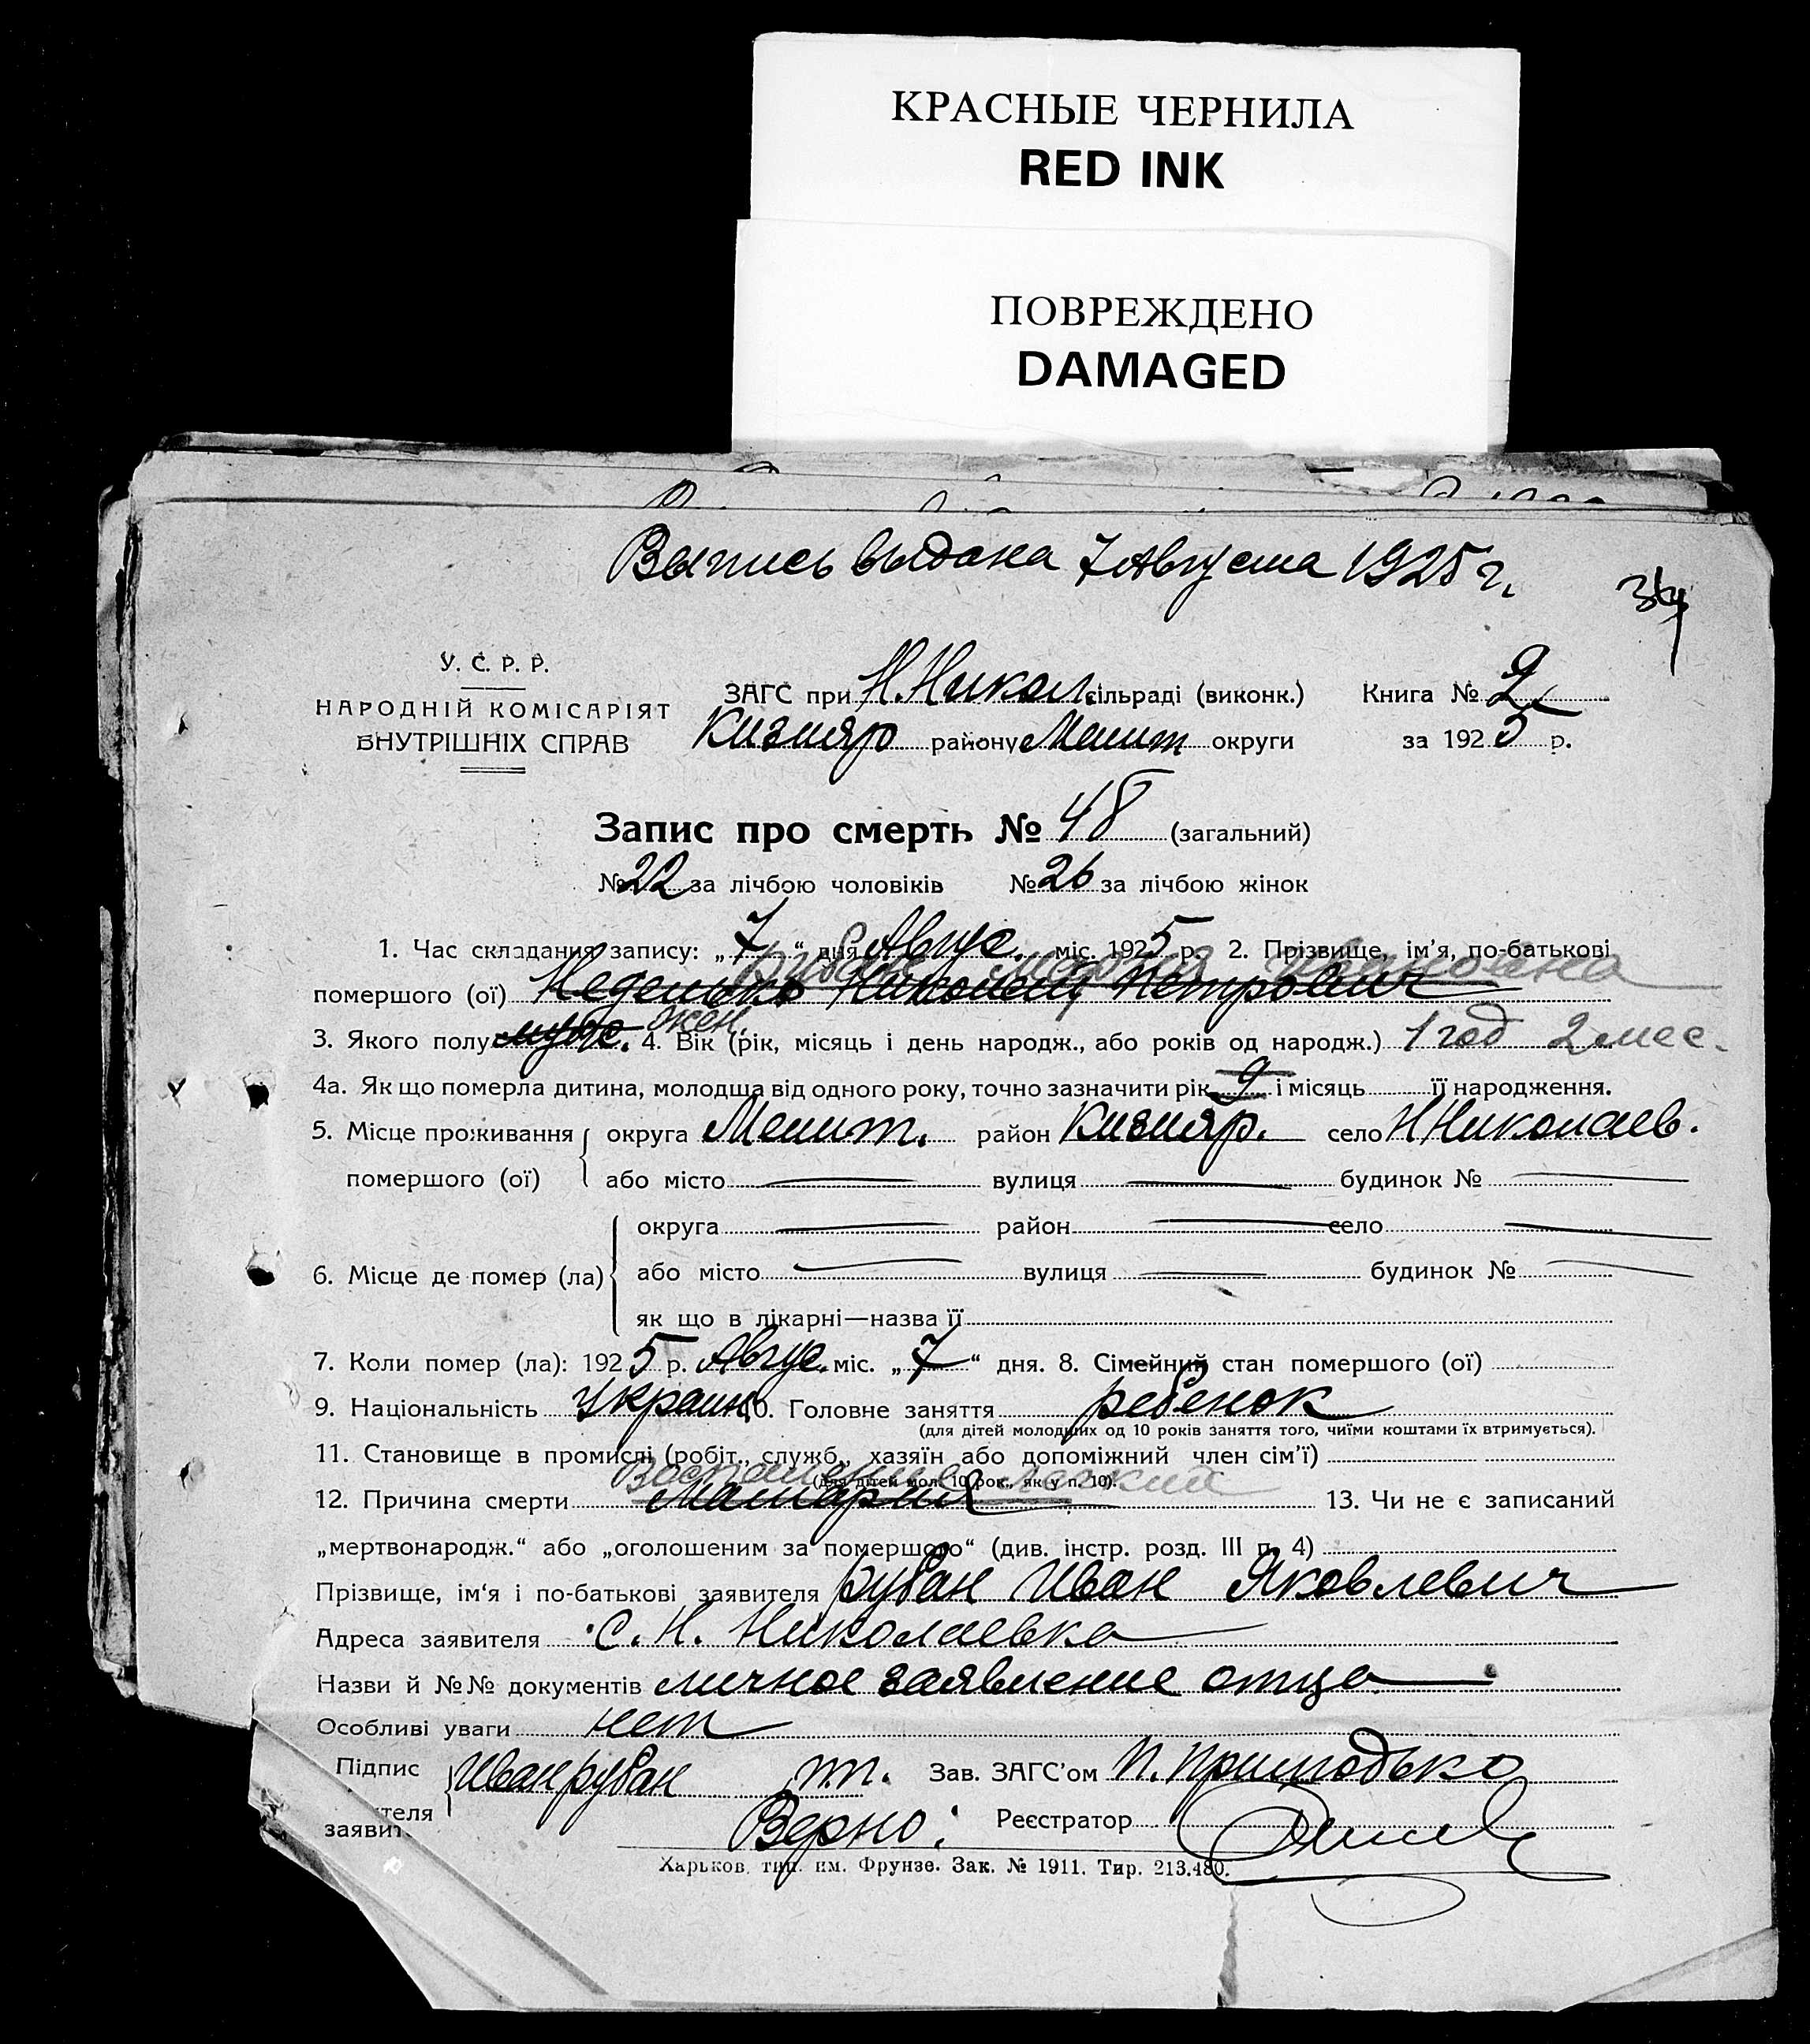 КРАСНЫЕ ЧЕРНИЛА
RED INK
ПОВРЕЖДЕНО
DAMAGED
Выпись выдана 7 Августа 1925 г.
У. С. Р. Р.
НАРОДНІЙ КОМІСАРІЯТ
ВНУТРІШНІХ СПРАВ
ЗАГС при Н. Никол. сільраді (виконк.) Книга № 2
Кизияр району Мелит округи за 1925 р.
Запис про смерть № 48 (загальний)
№ 22 за лічбою чоловіків № 26 за лічбою жінок
1. Час складання запису: „7“ дня Авгус. міс. 1925 р. 2. Прізвище, ім'я, по-батькові
Рубан Мария Ивановна
помершого (ої) Николай Петрович
3. Якого полу мужс. жен. 4. Вік (рік, місяць і день народж., або років од народж.) 1 год 2 мес.
4а. Як що померла дитина, молодша від одного року, точно зазначити рік 9 і місяць її народження.
5. Місце проживання помершого (ої) округа Мелит. район Кизияр. село Н Николаев.
або місто вулиця будинок №
6. Місце де помер (ла) округа район село
або місто вулиця будинок №
як що в лікарні—назва її
7. Коли помер (ла): 1925 р. Авгус. міс. „7“ дня. 8. Сімейний стан помершого (ої)
9. Національність Украин 10. Головне заняття ребенок
(для дітей молодших од 10 років заняття того, чиїми коштами їх втримується).
11. Становище в промислі (робіт., служб., хазяїн або допоміжний член сім'ї)
(для дітей мол. 10 рок., як у п. 10).
Воспаление легких
12. Причина смерти Малярия 13. Чи не є записаний
„мертвонародж.“ або „оголошеним за помершого“ (див. інстр. розд. III п. 4)
Прізвище, ім'я і по-батькові заявителя Рубан Иван Яковлевич
Адреса заявителя с. Н. Николаевка
Назви й №№ документів личное заявление отца
Особливі уваги нет
Підпис заявителя Иван Рубан п.п. Зав. ЗАГС'ом П. Приходько
Верно: Реєстратор
Харьков, тип. им. Фрунзе. Зак. № 1911. Тир. 213.480.